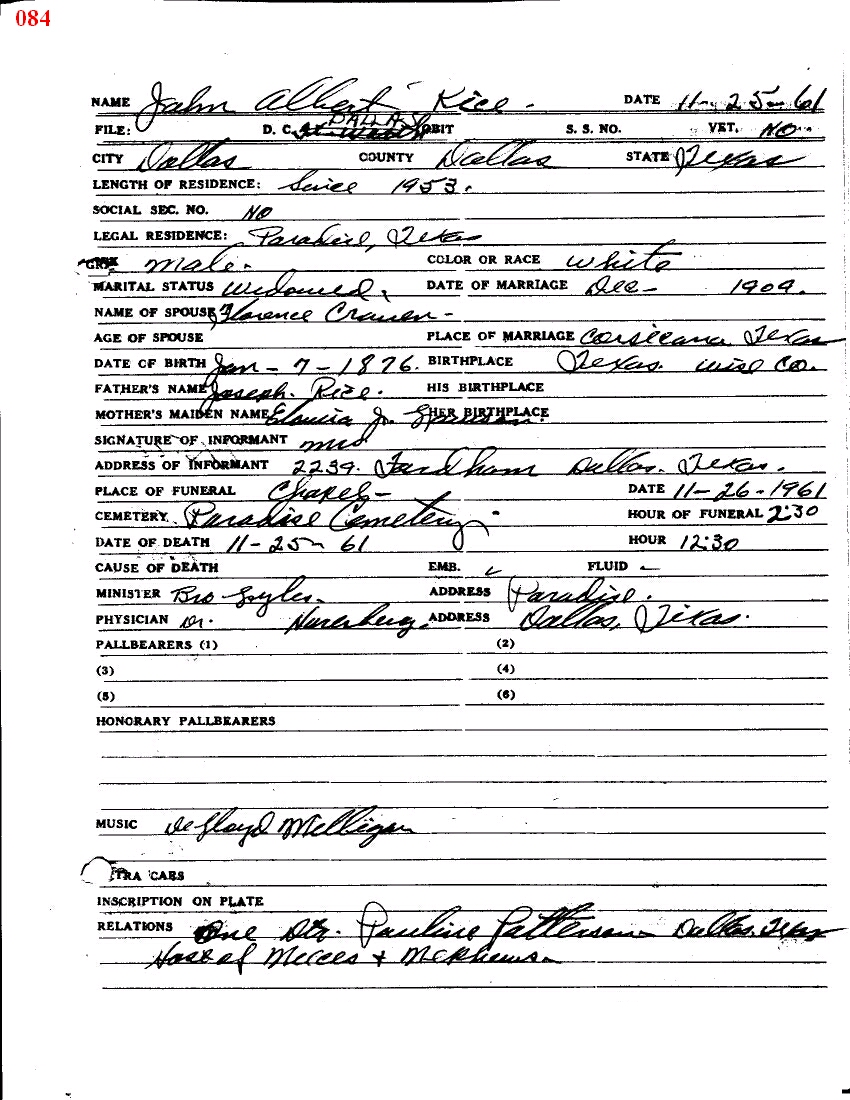 084
NAME John Albert Rice - DATE 11-25-61
FILE: D. C. DALLAS OBIT S. S. NO. VET. NO
CITY Dallas COUNTY Dallas STATE Texas
LENGTH OF RESIDENCE: Since 1953.
SOCIAL SEC. NO. NO
LEGAL RESIDENCE: Paradise, Texas
male. COLOR OR RACE White
MARITAL STATUS Widowed. DATE OF MARRIAGE Dec - 1909.
NAME OF SPOUSE Florence Craven -
AGE OF SPOUSE PLACE OF MARRIAGE Corsicana Texas
DATE OF BIRTH Jan - 7 - 1876. BIRTHPLACE Texas. Wise Co.
FATHER'S NAME Joseph. Rice. HIS BIRTHPLACE
MOTHER'S MAIDEN NAME HER BIRTHPLACE
SIGNATURE OF INFORMANT Mrs
ADDRESS OF INFORMANT 2239. Dallas. Texas.
PLACE OF FUNERAL Chapel - DATE 11-26-1961
CEMETERY Paradise Cemetery. HOUR OF FUNERAL 2:30
DATE OF DEATH 11-25-61 HOUR 12:30
CAUSE OF DEATH EMB. FLUID
MINISTER Bro ADDRESS Paradise.
PHYSICIAN Dr. ADDRESS Dallas, Texas.
PALLBEARERS (1) (2)
(3) (4)
(5) (6)
HONORARY PALLBEARERS
MUSIC
TRA CARS
INSCRIPTION ON PLATE
RELATIONS One Dtr. Pauline Patterson Dallas, Texas
Host of Nieces + Nephews.